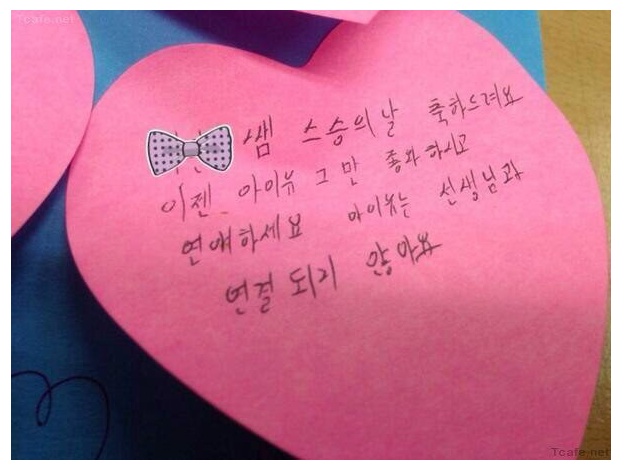 Tcafe.net
쌤 스승의날 축하드려요
이젠 아이유 그만 좋아하시고
연애하세요 아이유는 선생님과
연결되지 않아요
Tcafe.net